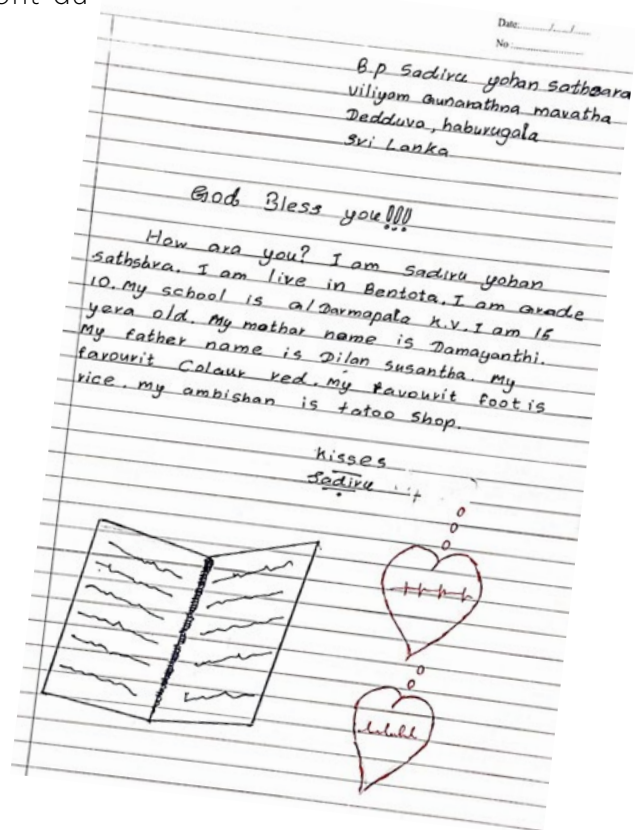 ont au
Date:........./....../......
No :........................
B.P Sadiru yohan Sathsara
viliyom Gunarathna mavatha
Dedduva, haburugala
Sri Lanka
God Bless you!!!
How ara you? I am Sadiru yohan
sathsara. I am live in Bentota. I am grade
10. My school is a/Darmapala K.V. I am 15
yera old. My mothar name is Damayanthi.
My father name is Dilan susantha. My
favourit Colaur red. my favourit foot is
rice. my ambishan is tatoo shop.
Kisses
Sadiru